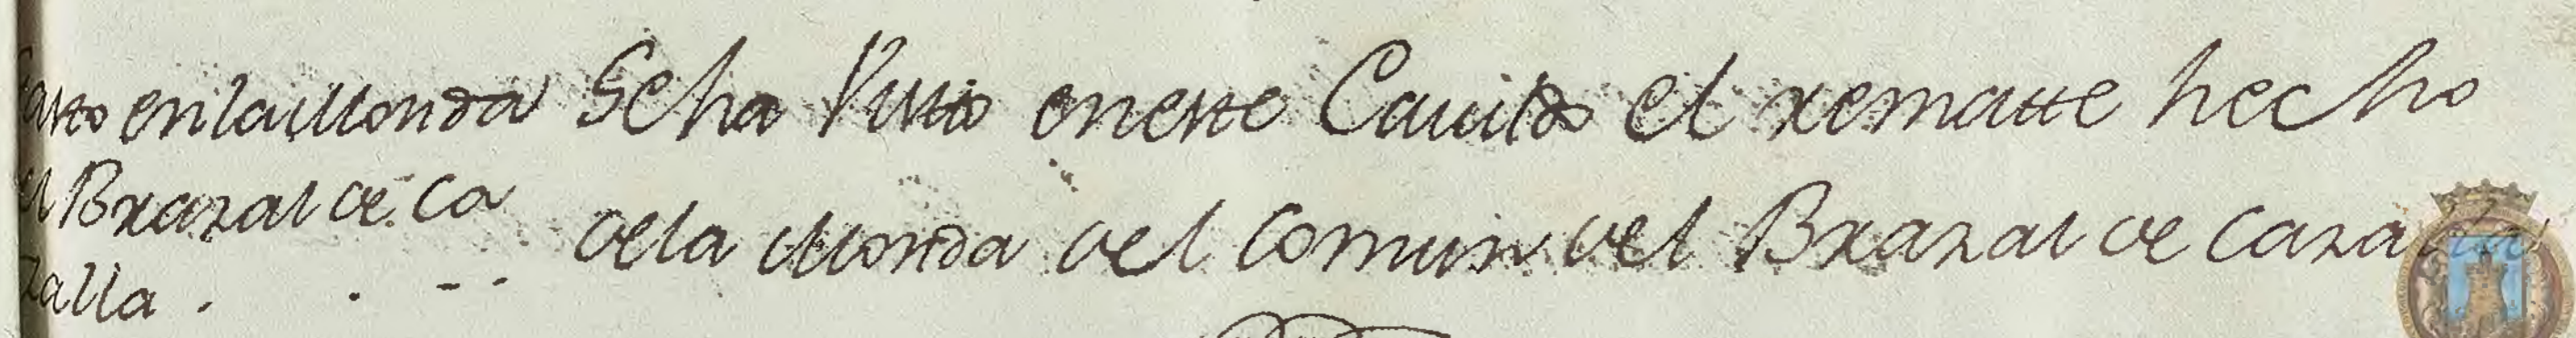 en la Monda
el Brazal de Ca
zalla . . - -
Se ha Vistto en estte Cauildo el rematte hecho
de la Monda del Comun del Brazal de Cazalla